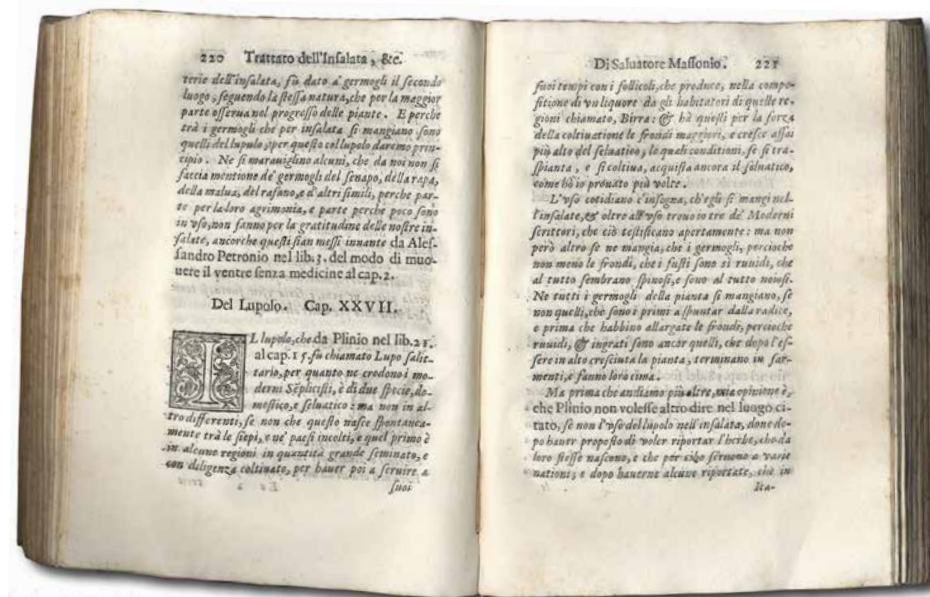 220 Trattato dell'Insalata, &c.
terie dell'insalata, fù dato a' germogli il secondo
luogo, seguendo la stessa natura, che per la maggior
parte osserua nel progresso delle piante. E perche
trà i germogli che per insalata si mangiano sono
quelli del lupulo, per questo col lupolo daremo prin-
cipio. Ne si marauiglino alcuni, che da noi non si
faccia mentione de' germogli del senapo, della rapa,
della malua, del rafano, e d'altri simili, perche par-
te per la loro agrimonia, e parte perche poco sono
in vso, non fanno per la gratitudine delle nostre in-
salate, ancorche questi sian messi innante da Ales-
sandro Petronio nel lib. 3. del modo di muo-
uere il ventre senza medicine al cap. 2.
Del Lupolo. Cap. XXVII.
IL lupolo, che da Plinio nel lib. 21.
al cap. 15. fù chiamato Lupo salit-
tario, per quanto ne credono i mo-
derni Sēplicisti, è di due specie, do-
mestico, e seluatico: ma non in al-
tro differenti, se non che questo nasce spontanea-
mente trà le siepi, e ne' paesi incolti, e quel primo è
in alcune regioni in quantità grande seminato, e
con diligenza coltiuato, per hauer poi a seruire a
suoi
Di Saluatore Massonio. 221
suoi tempi con i follicoli, che produce, nella compo-
sitione di vn liquore da gli habitatori di quelle re-
gioni chiamato, Birra: & hà questi per la forza
della coltiuatione le frondi maggiori, e cresce assai
più alto del seluatico, le quali conditioni, se si tra-
spianta, e si coltiua, acquista ancora il saluatico,
come hò io prouato più volte.
L'vso cotidiano c'insogna, ch'egli si mangi nel-
l'insalate, & oltro all'vso trouo in tre de' Moderni
scrittori, che ciò testificano apertamente: ma non
però altro se ne mangia, che i germogli, percioche
non meno le frondi, che i fusti sono sì ruuidi, che
al tutto sembrano spinosi, e sono al tutto noiosi.
Ne tutti i germogli della pianta si mangiano, se
non quelli, che sono i primi a spuntar dalla radice,
e prima che habbino allargate le frondi, percioche
ruuidi, & ingrati sono ancor quelli, che dopo l'es-
sere in alto cresciuta la pianta, terminano in sar-
menti, e fanno loro cima.
Ma prima che andiamo più oltre, mia opinione è,
che Plinio non volesse altro dire nel luogo ci-
tato, se non l'vso del lupolo nell'insalata, doue do-
po hauer proposto di voler riportar l'herbe, che da
loro stesse nascono, e che per cibo seruono a varie
nationi, e dopo hauerne alcune riportate, che in
Ita-